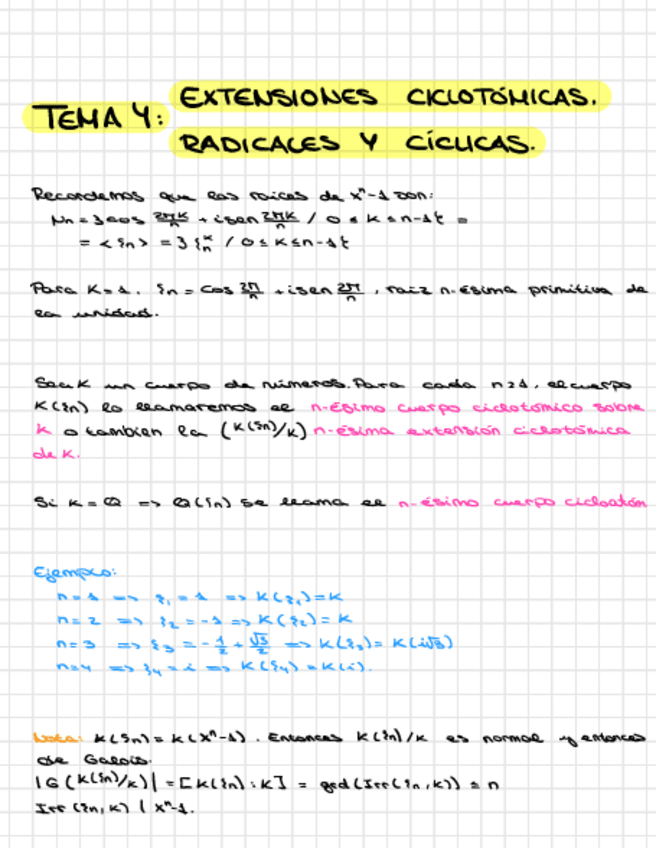 TEMA 4: EXTENSIONES CICLOTÓMICAS.
RADICALES Y CÍCLICAS.
Recordemos que las raíces de xⁿ-1 son:
μn = {cos 2πK/n + isen 2πK/n / 0 ≤ K ≤ n-1} =
= <ξn> = {ξn^K / 0 ≤ K ≤ n-1}
Para K=1, ξn = cos 2π/n + isen 2π/n, raíz n-ésima primitiva de
la unidad.
Sea K un cuerpo de números. Para cada n≥1, el cuerpo
K(ξn) lo llamaremos el n-ésimo cuerpo ciclotómico sobre
K o tambien la (K(ξn)/K) n-ésima extensión ciclotómica
de K.
Si K = Q => Q(ξn) se llama el n-ésimo cuerpo
Ejemplo:
n=1 => ξ₁ = 1 => K(ξ₁)=K
n=2 => ξ₂ = -1 => K(ξ₂) = K
n=3 => ξ₃ = -1/2 + √3/2 => K(ξ₃) = K(i√3)
n=4 => ξ₄ = i => K(ξ₄) = K(i).
Nota: K(ξn) = K(xⁿ-1). Entonces K(ξn)/K es normal y entonces
de Galois.
|G(K(ξn)/K)| = [K(ξn):K] = grd(Irr(ξn,K)) ≤ n
Irr(ξn,K) | xⁿ-1.